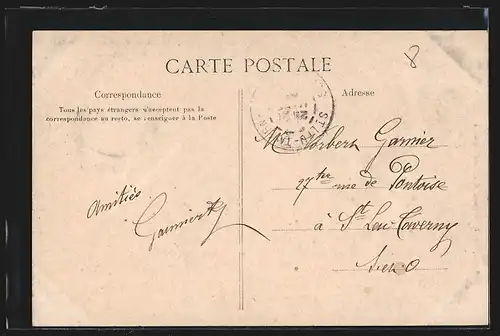 8
CARTE POSTALE
Correspondance
Adresse
Tous les pays étrangers n'acceptent pas la
correspondance au recto, se renseigner à la Poste
Garnier
27 ter rue de Pontoise
à St Leu Taverny
S. et O
Amitiés